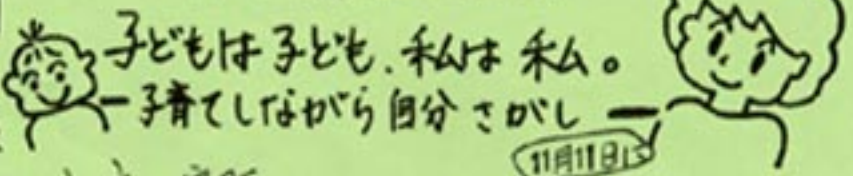 子どもは子ども、私は私。
―子育てしながら自分さがし―
11月11日に